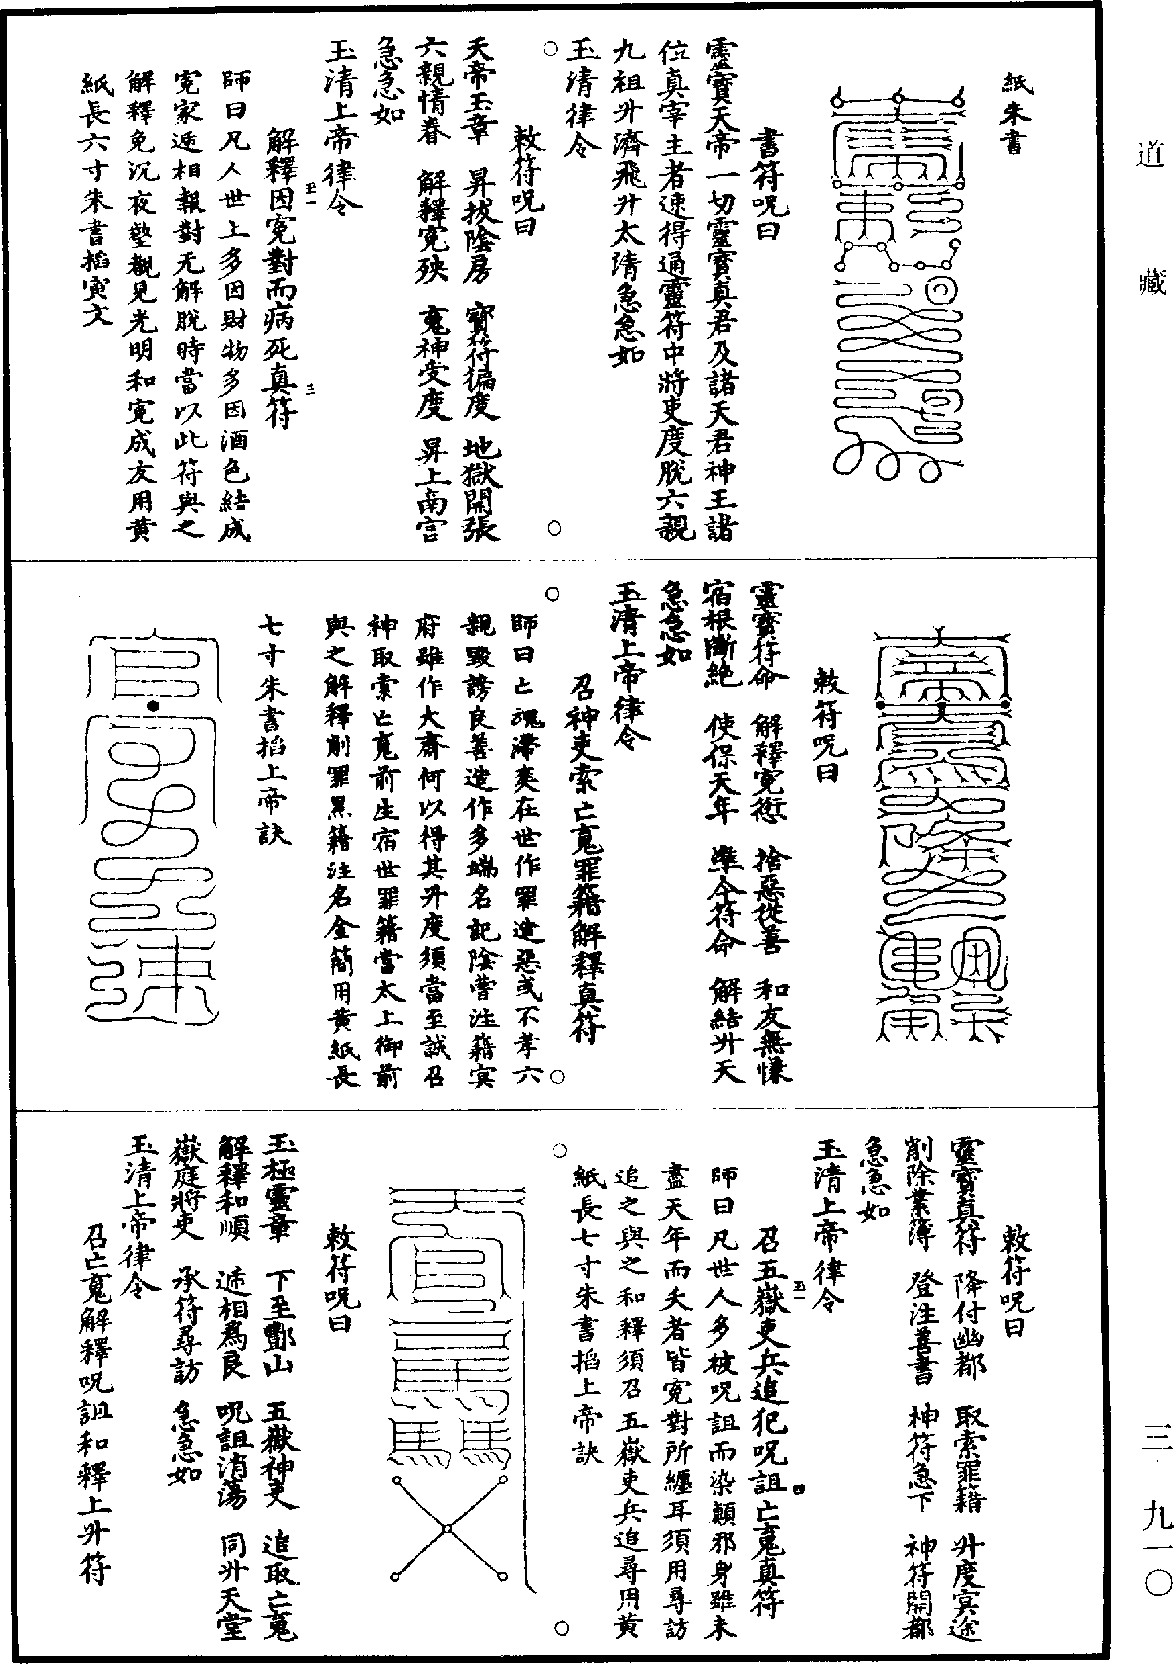 道藏
三·九一〇
紙朱書
書符呪曰
靈寶天帝一切靈寶真君及諸天君神王諸
位真宰主者速得通靈符中將吏度脫六親
九祖升濟飛升太清急急如
玉清律令
敕符呪曰
天帝玉章　昇拔陰房　寶符徧度　地獄開張
六親情眷　解釋冤殃　䰟神受度　昇上南宫
急急如
玉清上帝律令
解釋因冤對而病死真符
師曰凡人世上多因財物多因酒色結成
冤家遞相報對无解脫時當以此符與之
解釋免沉夜壑觀見光明和冤成友用黃
紙長六寸朱書掐寅文
敕符呪曰
靈寶符命　解釋冤愆　捨惡從善　和友無慊
宿根斷絕　使保天年　準今符命　解結升天
急急如
玉清上帝律令
召神吏索亡䰟罪籍解釋真符
師曰亡魂滯爽在世作罪造惡或不孝六
親毀謗良善造作多端名記陰曹注籍冥
府雖作大齋何以得其升度須當至誠召
神取索亡䰟前生宿世罪籍當太上御前
與之解釋削罪黑籍注名金簡用黃紙長
七寸朱書掐上帝訣
敕符呪曰
靈寶真符　降付幽都　取索罪籍　升度冥途
削除業簿　登注善書　神符急下　神符開都
急急如
玉清上帝律令
召五嶽吏兵追犯呪詛亡䰟真符
師曰凡世人多被呪詛而染顛邪身雖未
盡天年而夭者皆冤對所纏耳須用尋訪
追之與之和釋須召五嶽吏兵追尋用黃
紙長七寸朱書掐上帝訣
敕符呪曰
玉極靈章　下至酆山　五嶽神吏　追取亡䰟
解釋和順　遞相爲良　呪詛消蕩　同升天堂
嶽庭將吏　承符尋訪　急急如
玉清上帝律令
召亡䰟解釋呪詛和釋上升符